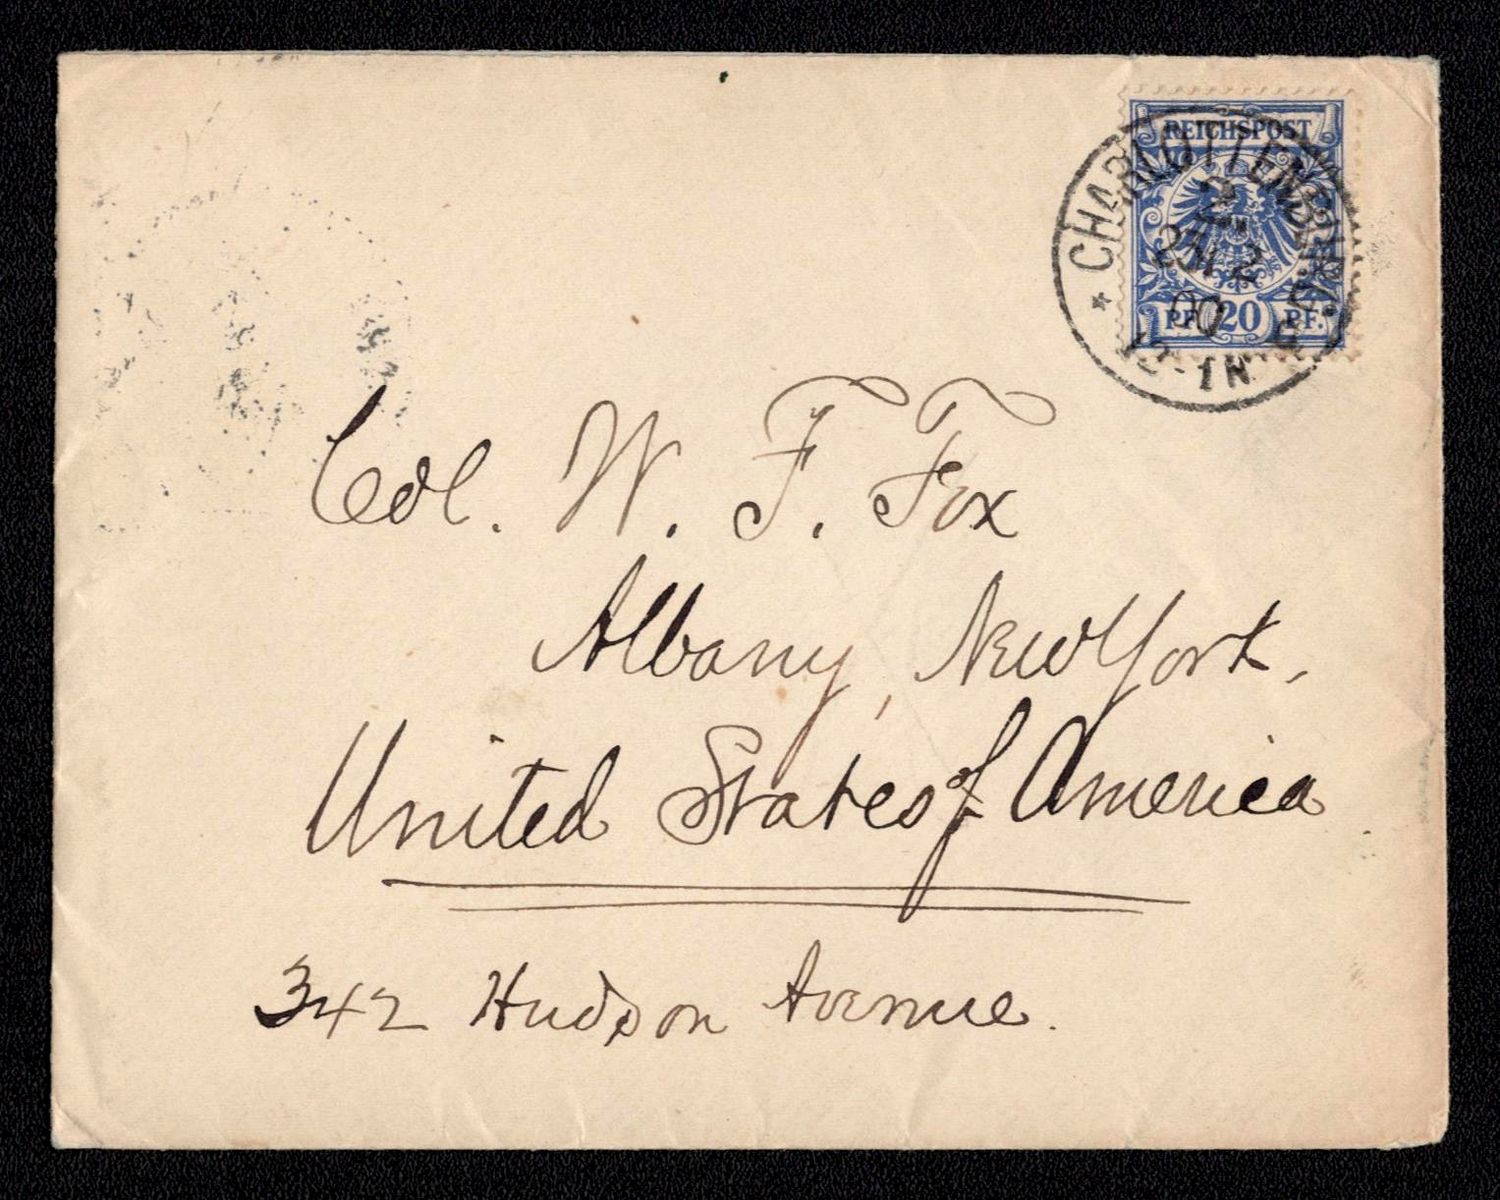 REICHSPOST
PF. 20 PF.
CHARLOTTENBURG
2
23/2
00
12-1N
Col. W. F. Fox
Albany, New York,
United States of America
342 Hudson Avenue.